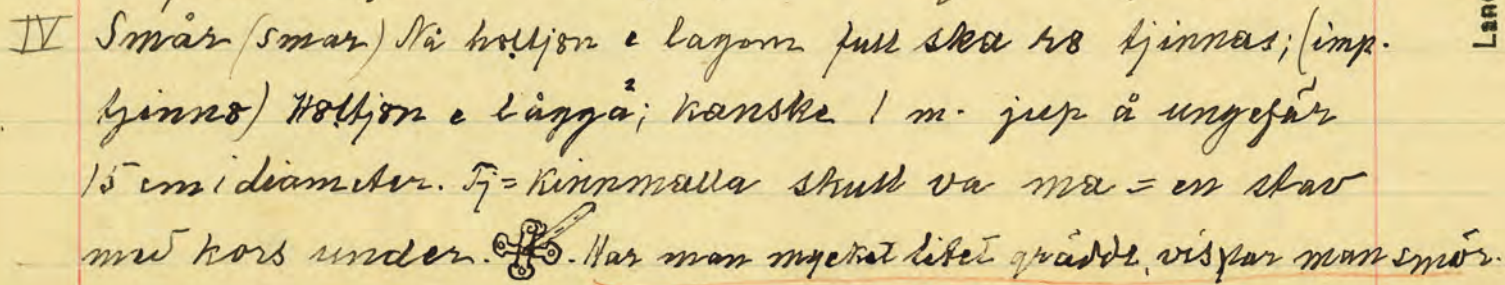 IV Smår (smar) Nå holtjön e lagom full ska rö tjinnas; (imp.
tjinnö) Holtjön e låggå; kanske 1 m. jup å ungefär
15 cm i diameter. Tj = Kinnmalla skull va ma = en stav
med kors under. Har man mycket litet grädde, vispar man smör.
Land